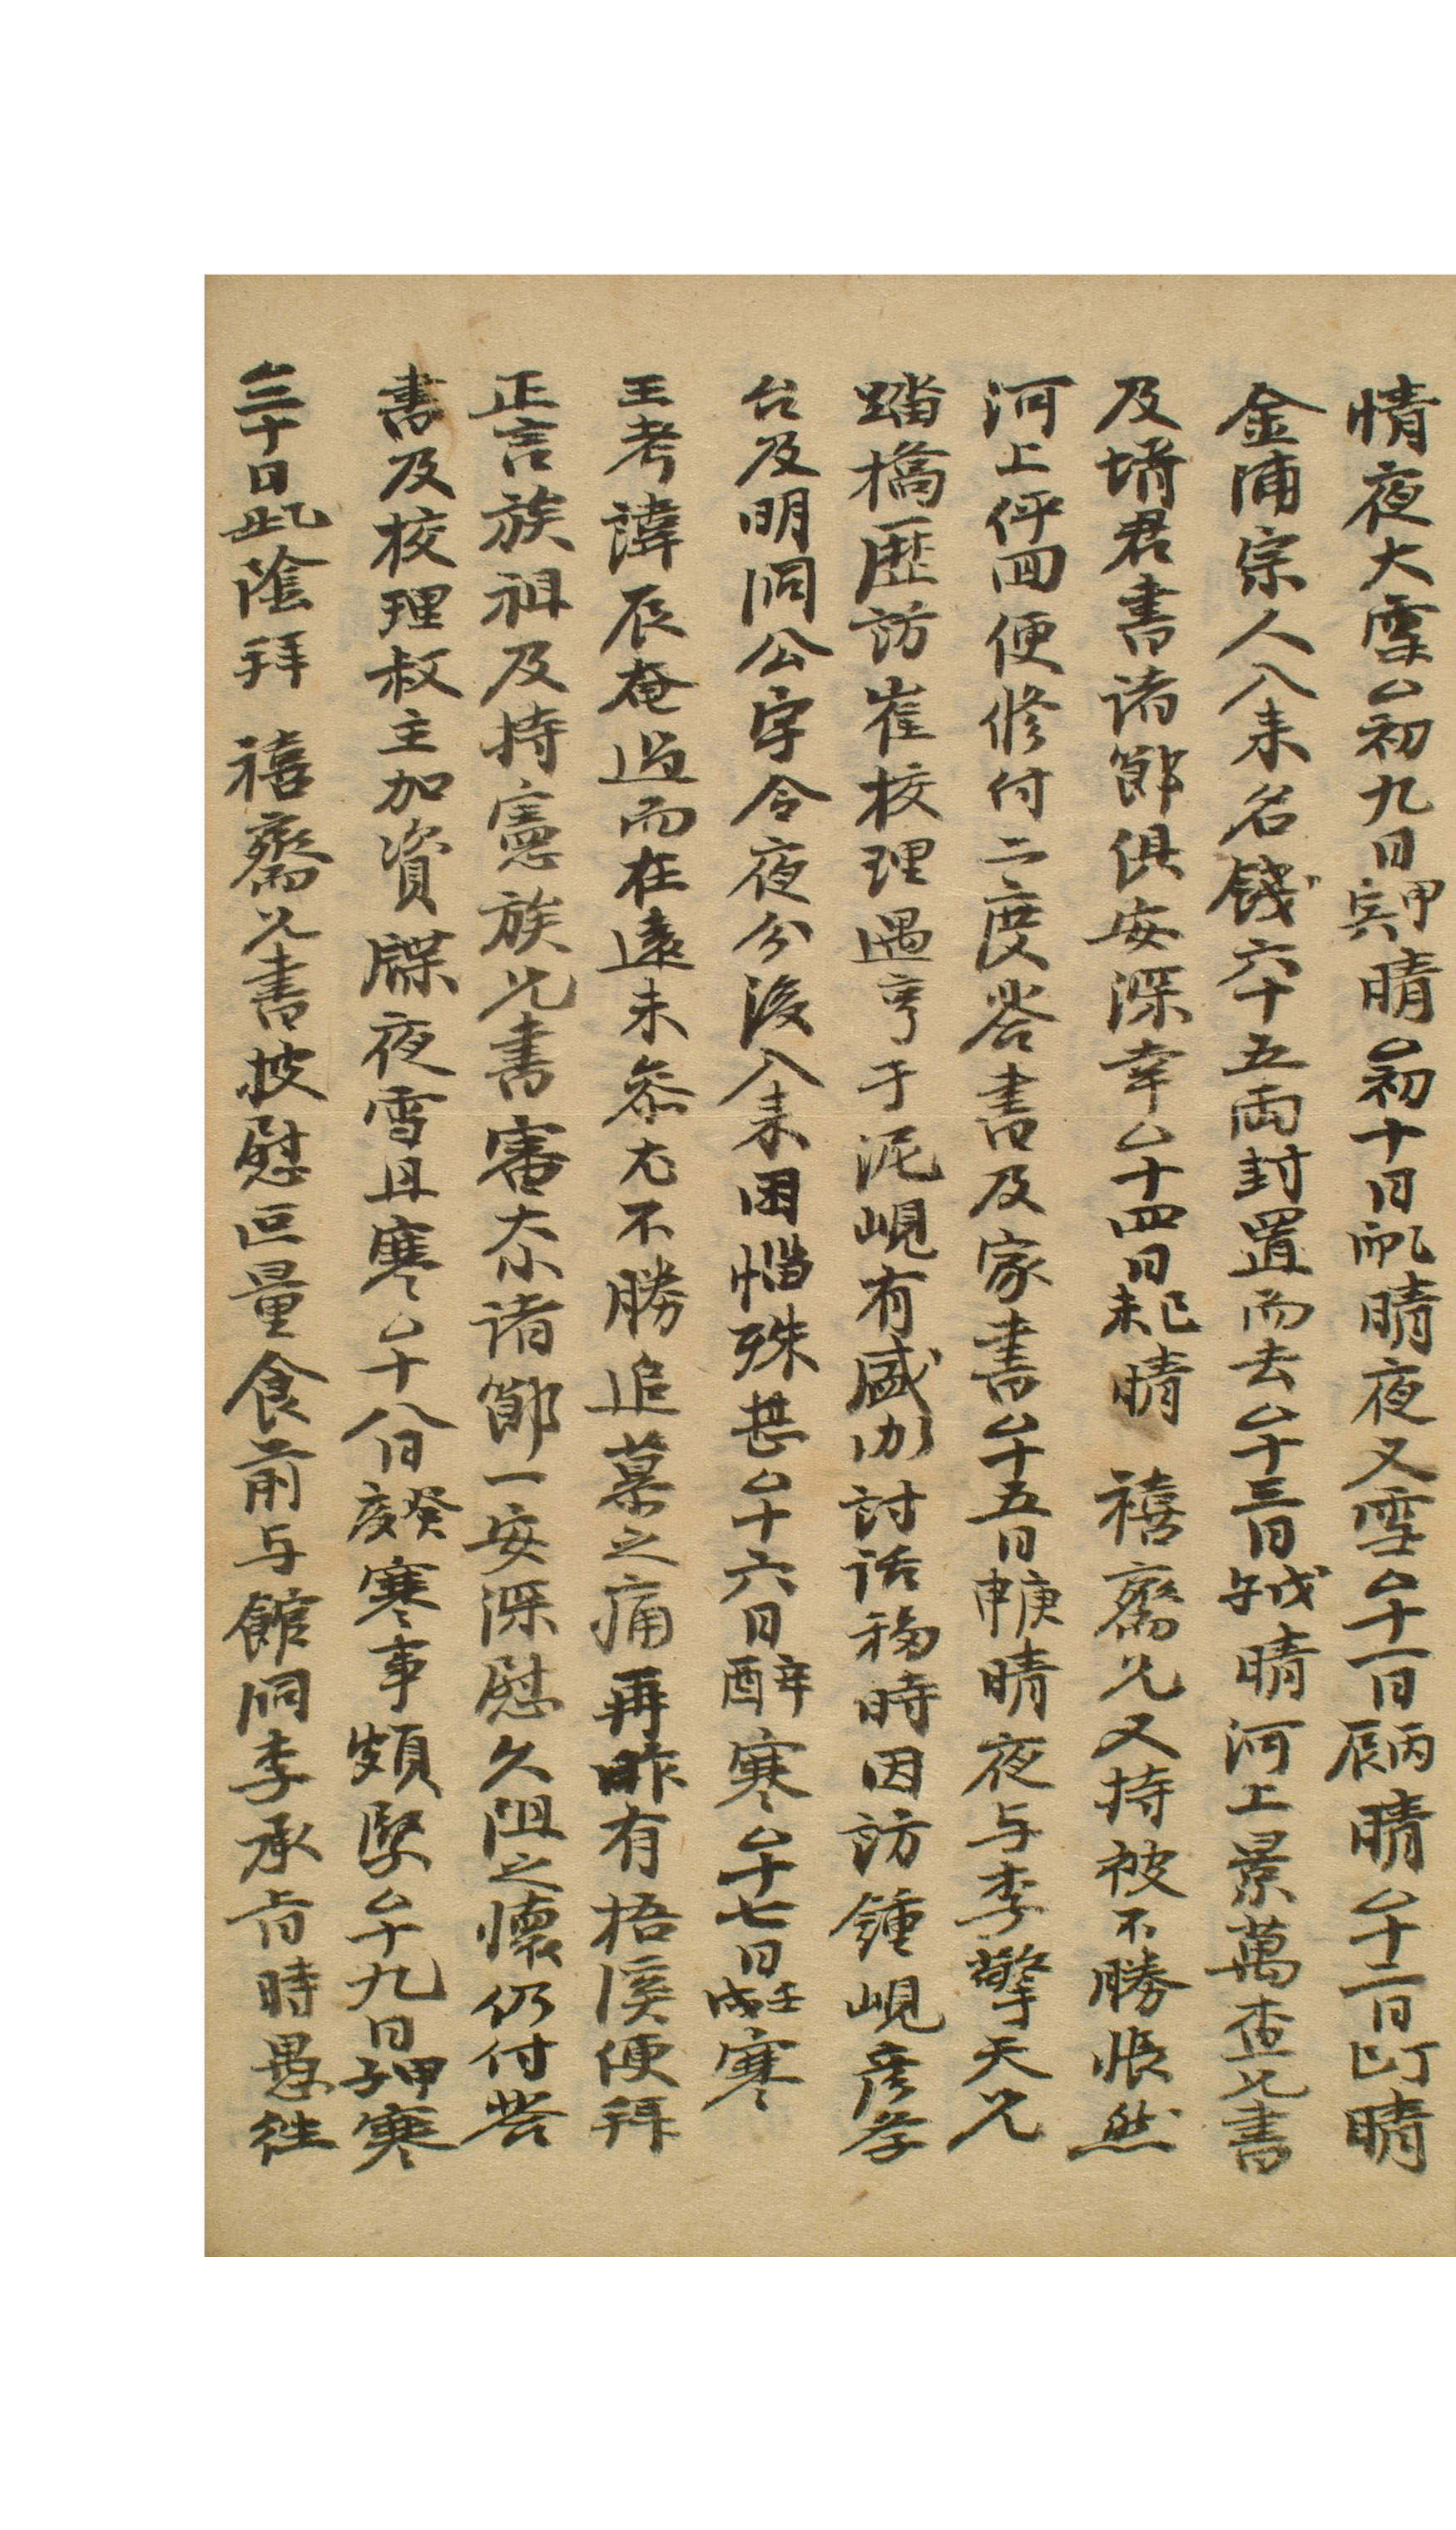 情夜大雪△初九日甲寅晴△初十日乙卯晴夜又雪△十一日丙辰晴△十二日丁巳晴
金浦宗人入来名錢六十五両封置而去△十三日戊午晴河上景萬査兄書
及壻君書諸節俱安深幸△十四日己未晴 禧齋兄又持被不勝悵然
河上伻回便修付二度答書及家書△十五日庚申晴夜与李擎天兄
踏橋歷訪崔校理遇亨于泥峴有盛加討話移時因訪鍾峴彦孝
台及明洞公宇令夜分後入来困惱殊甚△十六日辛酉寒△十七日壬戌寒
王考諱辰奄過而在遠未叅尤不勝追慕之痛再昨有梧溪便拜
正言族祖及持憲族兄書審夲諸節一安深慰久阻之懷仍付答
書及校理叔主加資牒夜雪且寒△十八日癸亥寒事頗緊△十九日甲子寒
△二十日乙丑陰拜 禧齋兄書披慰叵量食前与館洞李承旨時愚徃